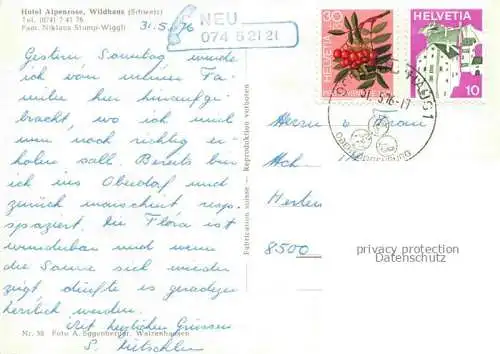 Hotel Alpenrose, Wildhaus (Schweiz)
Tel. (074) 7 41 76
Fam. Niklaus Stump-Wiggli
31.5.76
NEU
074 5 21 21
Gestern Sonntag wurde
ich von meinen Fa-
milie hier hinaufge-
bracht, wo ich mich
nun noch richtig er-
holen soll. Bereits bin
ich ins Oberdorf und
zurück marschiert resp.
spaziert. Die Flora ist
wunderbar und wenn
die Sonne sich wieder
zeigt dürfte es geradezu
herrlich werden.
Mit herzlichen Grüssen
S.
Nr. 58 Foto A. Eggenberger, Watzenhausen
Fabrication suisse — Reproduktion verboten
30
HELVETIA
PRO JUVENTUTE
HELVETIA
10
Herrn u. Frau
Herten
8500
privacy protection
Datenschutz